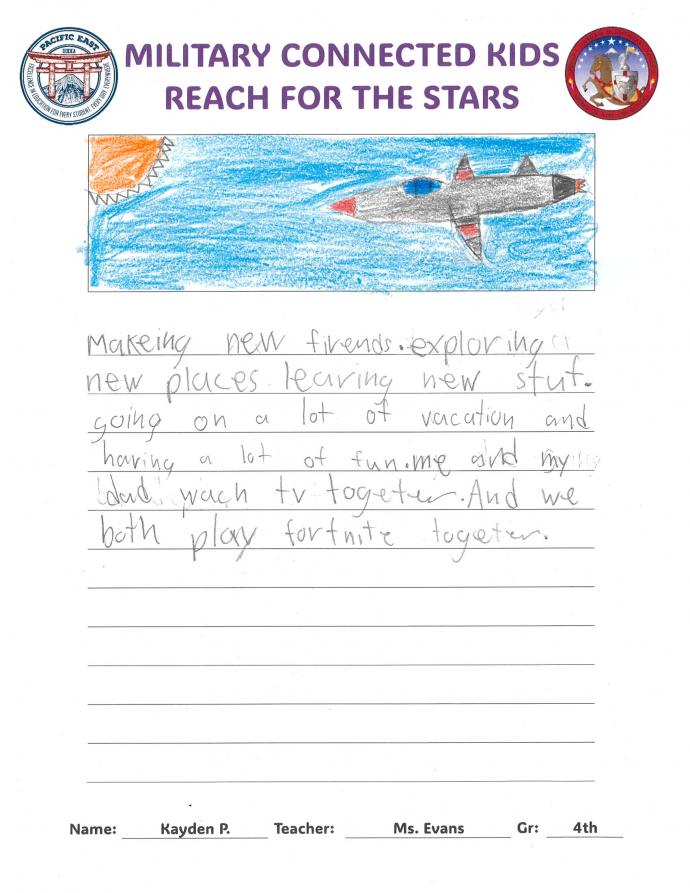 PACIFIC EAST
DODEA
EXCELLENCE IN EDUCATION FOR EVERY STUDENT, EVERY DAY, EVERYWHERE
MILITARY CONNECTED KIDS
REACH FOR THE STARS
Makeing new firends. exploring
new places. learing new stuf.
going on a lot of vacation and
having a lot of fun. me and my
dad wach tv together. And we
both play fortnite together.
Name: Kayden P. Teacher: Ms. Evans Gr: 4th